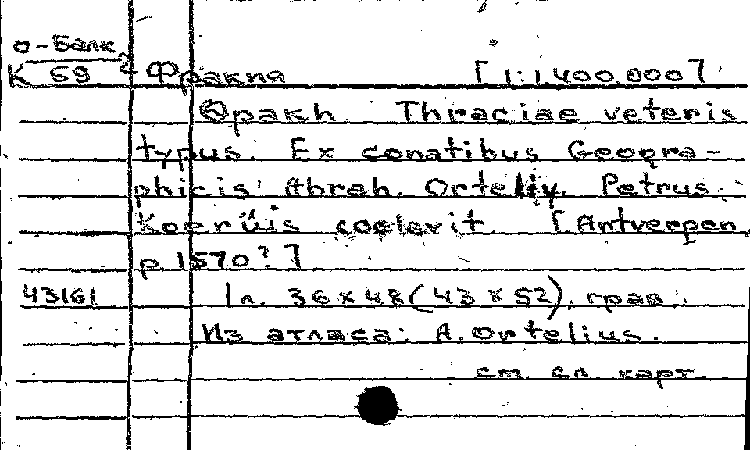 о-Балк
К 69 Фракия [1:1.400.000]
Θρακη Thraciae veteris
typus. Ex conatibus Geogra-
phicis Abrah. Ortelij. Petrus
Koerüis coelavit. [Antverpen,
p. 1570?]
43161 1 л. 36 x 48 (43 x 52), грав.
Из атласа: A. Ortelius.
см. сл. карт.